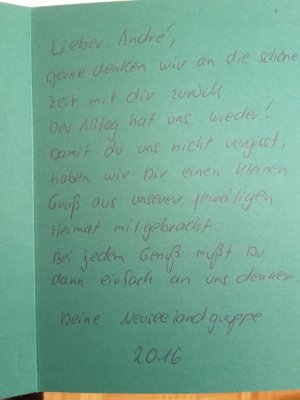 Lieber André,
gerne denken wir an die schöne
Zeit mit dir zurück
Der Alltag hat uns wieder!
Damit du uns nicht vergisst,
haben wir Dir einen kleinen
Gruß aus unserer jeweiligen
Heimat mitgebracht.
Bei jedem Genuß mußt Du
dann einfach an uns denken
Deine Neuseelandgruppe
2016